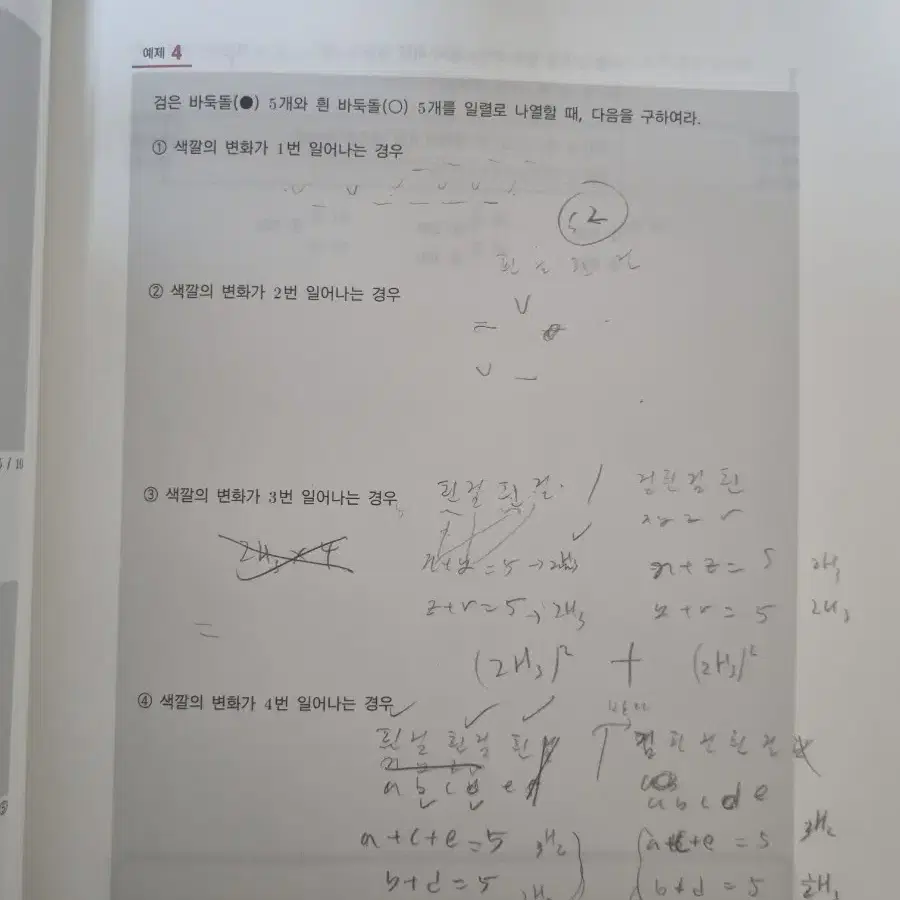 예제 4
검은 바둑돌(●) 5개와 흰 바둑돌(○) 5개를 일렬로 나열할 때, 다음을 구하여라.
① 색깔의 변화가 1번 일어나는 경우
2
② 색깔의 변화가 2번 일어나는 경우
5 / 10
③ 색깔의 변화가 3번 일어나는 경우
흰검흰검 / 검흰검흰
2H3 × 4
x+y=5 → 2H3
x+z=5 2H3
z+v=5 → 2H3
y+v=5 2H3
=
(2H3)² + (2H3)²
④ 색깔의 변화가 4번 일어나는 경우
흰검 흰검 흰
a b c d e
a b c d e
a+c+e=5 3H2
a+c+e=5 3H2
b+d=5
b+d=5 2H3